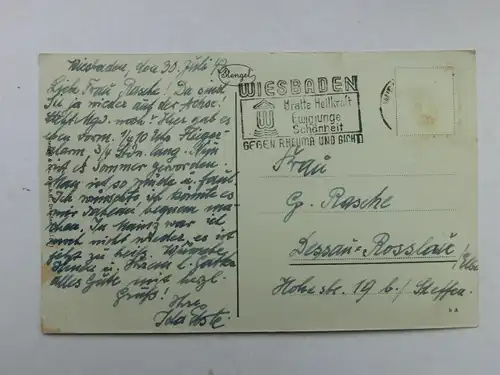 Wiesbaden, den 30. Juli 42
Liebe Frau Rasche! Da sind
Sie ja wieder auf der Achse!
noch? Hier gab es
eben vorm. 1/2 10 Uhr Flieger-
alarm 3/4 Std. lang. Nun
ist es Sommer geworden.
Man ist so müde u. faul.
Ich wünschte ich könnte es
mir daheim bequem ma-
chen. In Mainz war ich
noch nicht wieder, es ist
jetzt zu heiß. Wünsche
Ihnen u.
alles Gute mit herzl.
Gruß!
Ihre
Stengel
WIESBADEN
Uralte Heilkraft
Ewigjunge
Schönheit
GEGEN RHEUMA UND GICHT
WIE
Frau
G. Rasche
Dessau-Rosslau
/Elbe
Hohestr. 19 b/ Steffen.